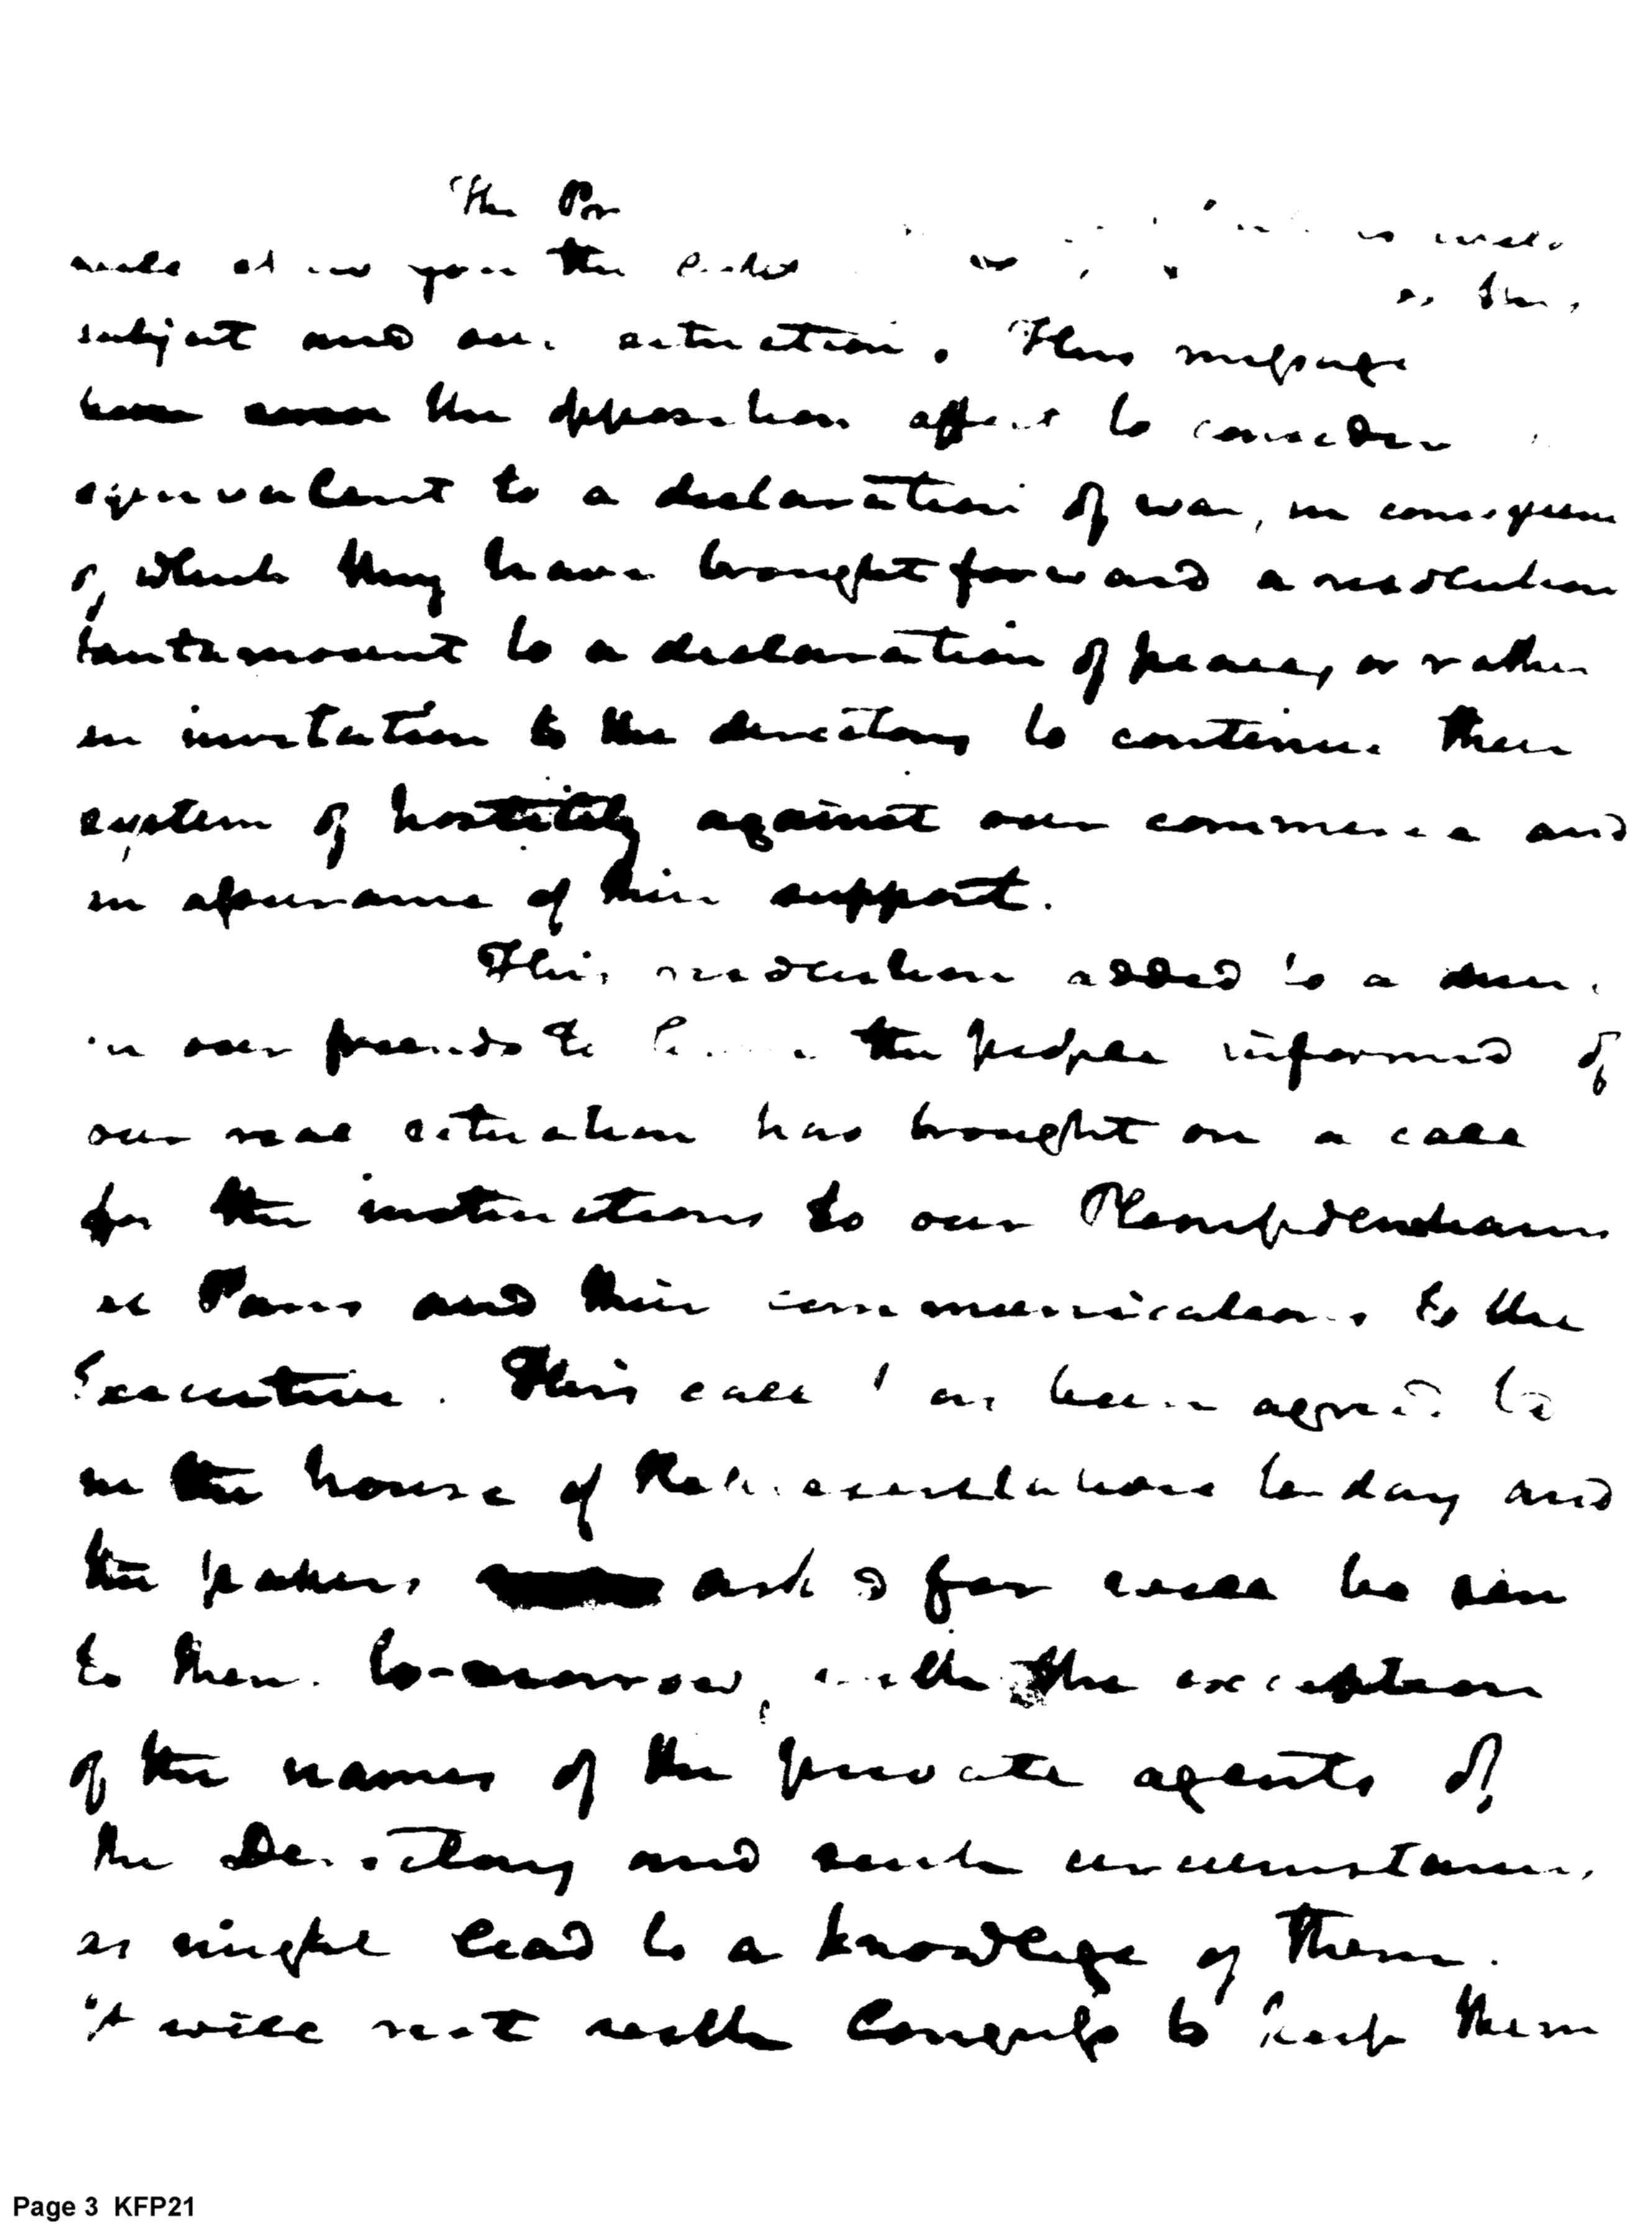 The
the
subject and our situation. This message
the opposition affect to consider
equivalent to a declaration of war, in consequence
of which they have brought forward a resolution
tantamount to a declaration of peace, or rather
an invitation to the directory to continue their
system of hostility against our commerce and
an assurance of their support.
This resolution added to a desire
in our friends to the people informed of
our real situation has brought on a call
for the instructions to our Plenipotentiaries
at Paris and their communications to the
Executive. This call has been agreed to
in the house of Representatives to day and
the papers asked for will be sent
to them to-morrow, with the exception
of the names of the private agents of
the Directory and such circumstances
as might lead to a knowledge of them.
it will rest with Congress to keep them
Page 3 KFP21